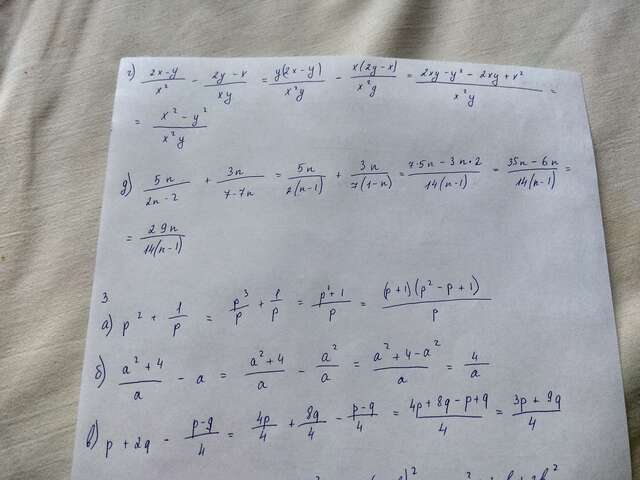 г) (2x-y)/x² - (2y-x)/xy = y(2x-y)/x²y - x(2y-x)/x²y = (2xy-y²-2xy+x²)/x²y =
= (x²-y²)/x²y
д) 5n/(2n-2) + 3n/(7-7n) = 5n/2(n-1) + 3n/7(1-n) = (7·5n-3n·2)/14(n-1) = (35n-6n)/14(n-1) =
= 29n/14(n-1)
3.
а) p² + 1/p = p³/p + 1/p = (p³+1)/p = (p+1)(p²-p+1)/p
б) (a²+4)/a - a = (a²+4)/a - a²/a = (a²+4-a²)/a = 4/a
в) p+2q - (p-q)/4 = 4p/4 + 8q/4 - (p-q)/4 = (4p+8q-p+q)/4 = (3p+9q)/4